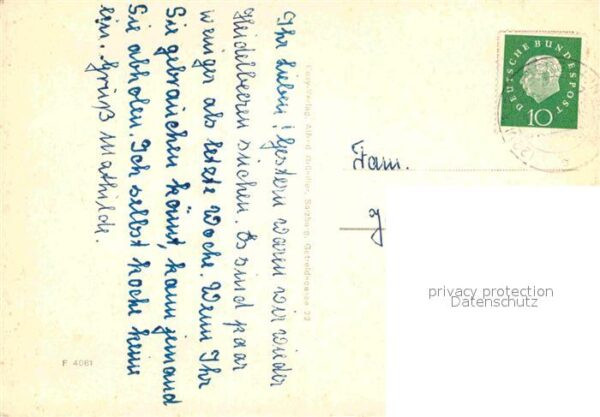 Ihr Lieben! Gestern waren wir wieder
Heidelbeeren suchen. Es sind paar
weniger als letzte Woche. Wenn Ihr
Sie gebrauchen könnt, kann jemand
Sie abholen. Ich selbst koche keine
ein. Gruß Mathilde.
Fam.
DEUTSCHE BUNDESPOST
10
privacy protection
Datenschutz
F 4061